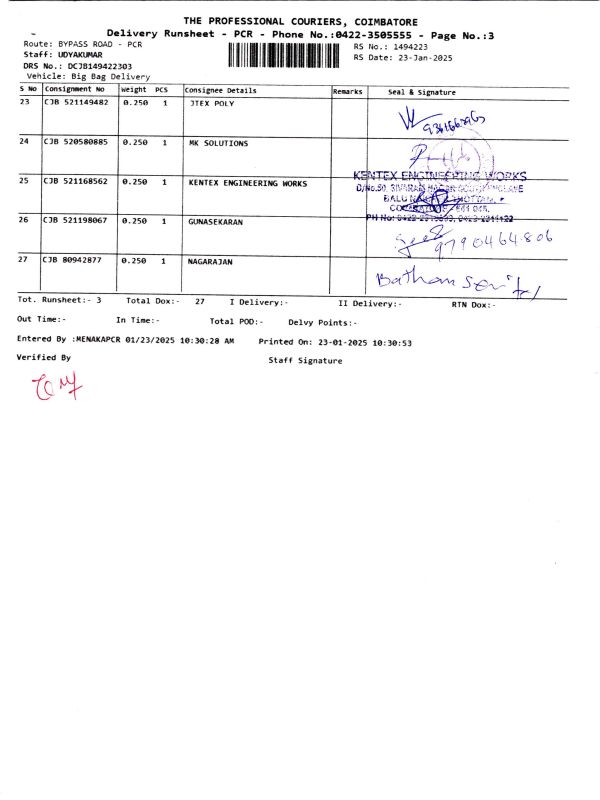 THE PROFESSIONAL COURIERS, COIMBATORE
Delivery Runsheet - PCR - Phone No.:0422-3505555 - Page No.:3
Route: BYPASS ROAD - PCR
RS No.: 1494223
Staff: UDYAKUMAR
RS Date: 23-Jan-2025
DRS No.: DCJB149422303
Vehicle: Big Bag Delivery
S No Consignment No Weight PCS Consignee Details Remarks Seal & Signature
23 CJB 521149482 0.250 1 JTEX POLY
24 CJB 520580885 0.250 1 MK SOLUTIONS
25 CJB 521168562 0.250 1 KENTEX ENGINEERING WORKS
KENTEX ENGINEERING WORKS
26 CJB 521198067 0.250 1 GUNASEKARAN
9790464806
27 CJB 80942877 0.250 1 NAGARAJAN
Tot. Runsheet:- 3 Total Dox:- 27 I Delivery:- II Delivery:- RTN Dox:-
Out Time:- In Time:- Total POD:- Delvy Points:-
Entered By :MENAKAPCR 01/23/2025 10:30:28 AM Printed On: 23-01-2025 10:30:53
Verified By Staff Signature